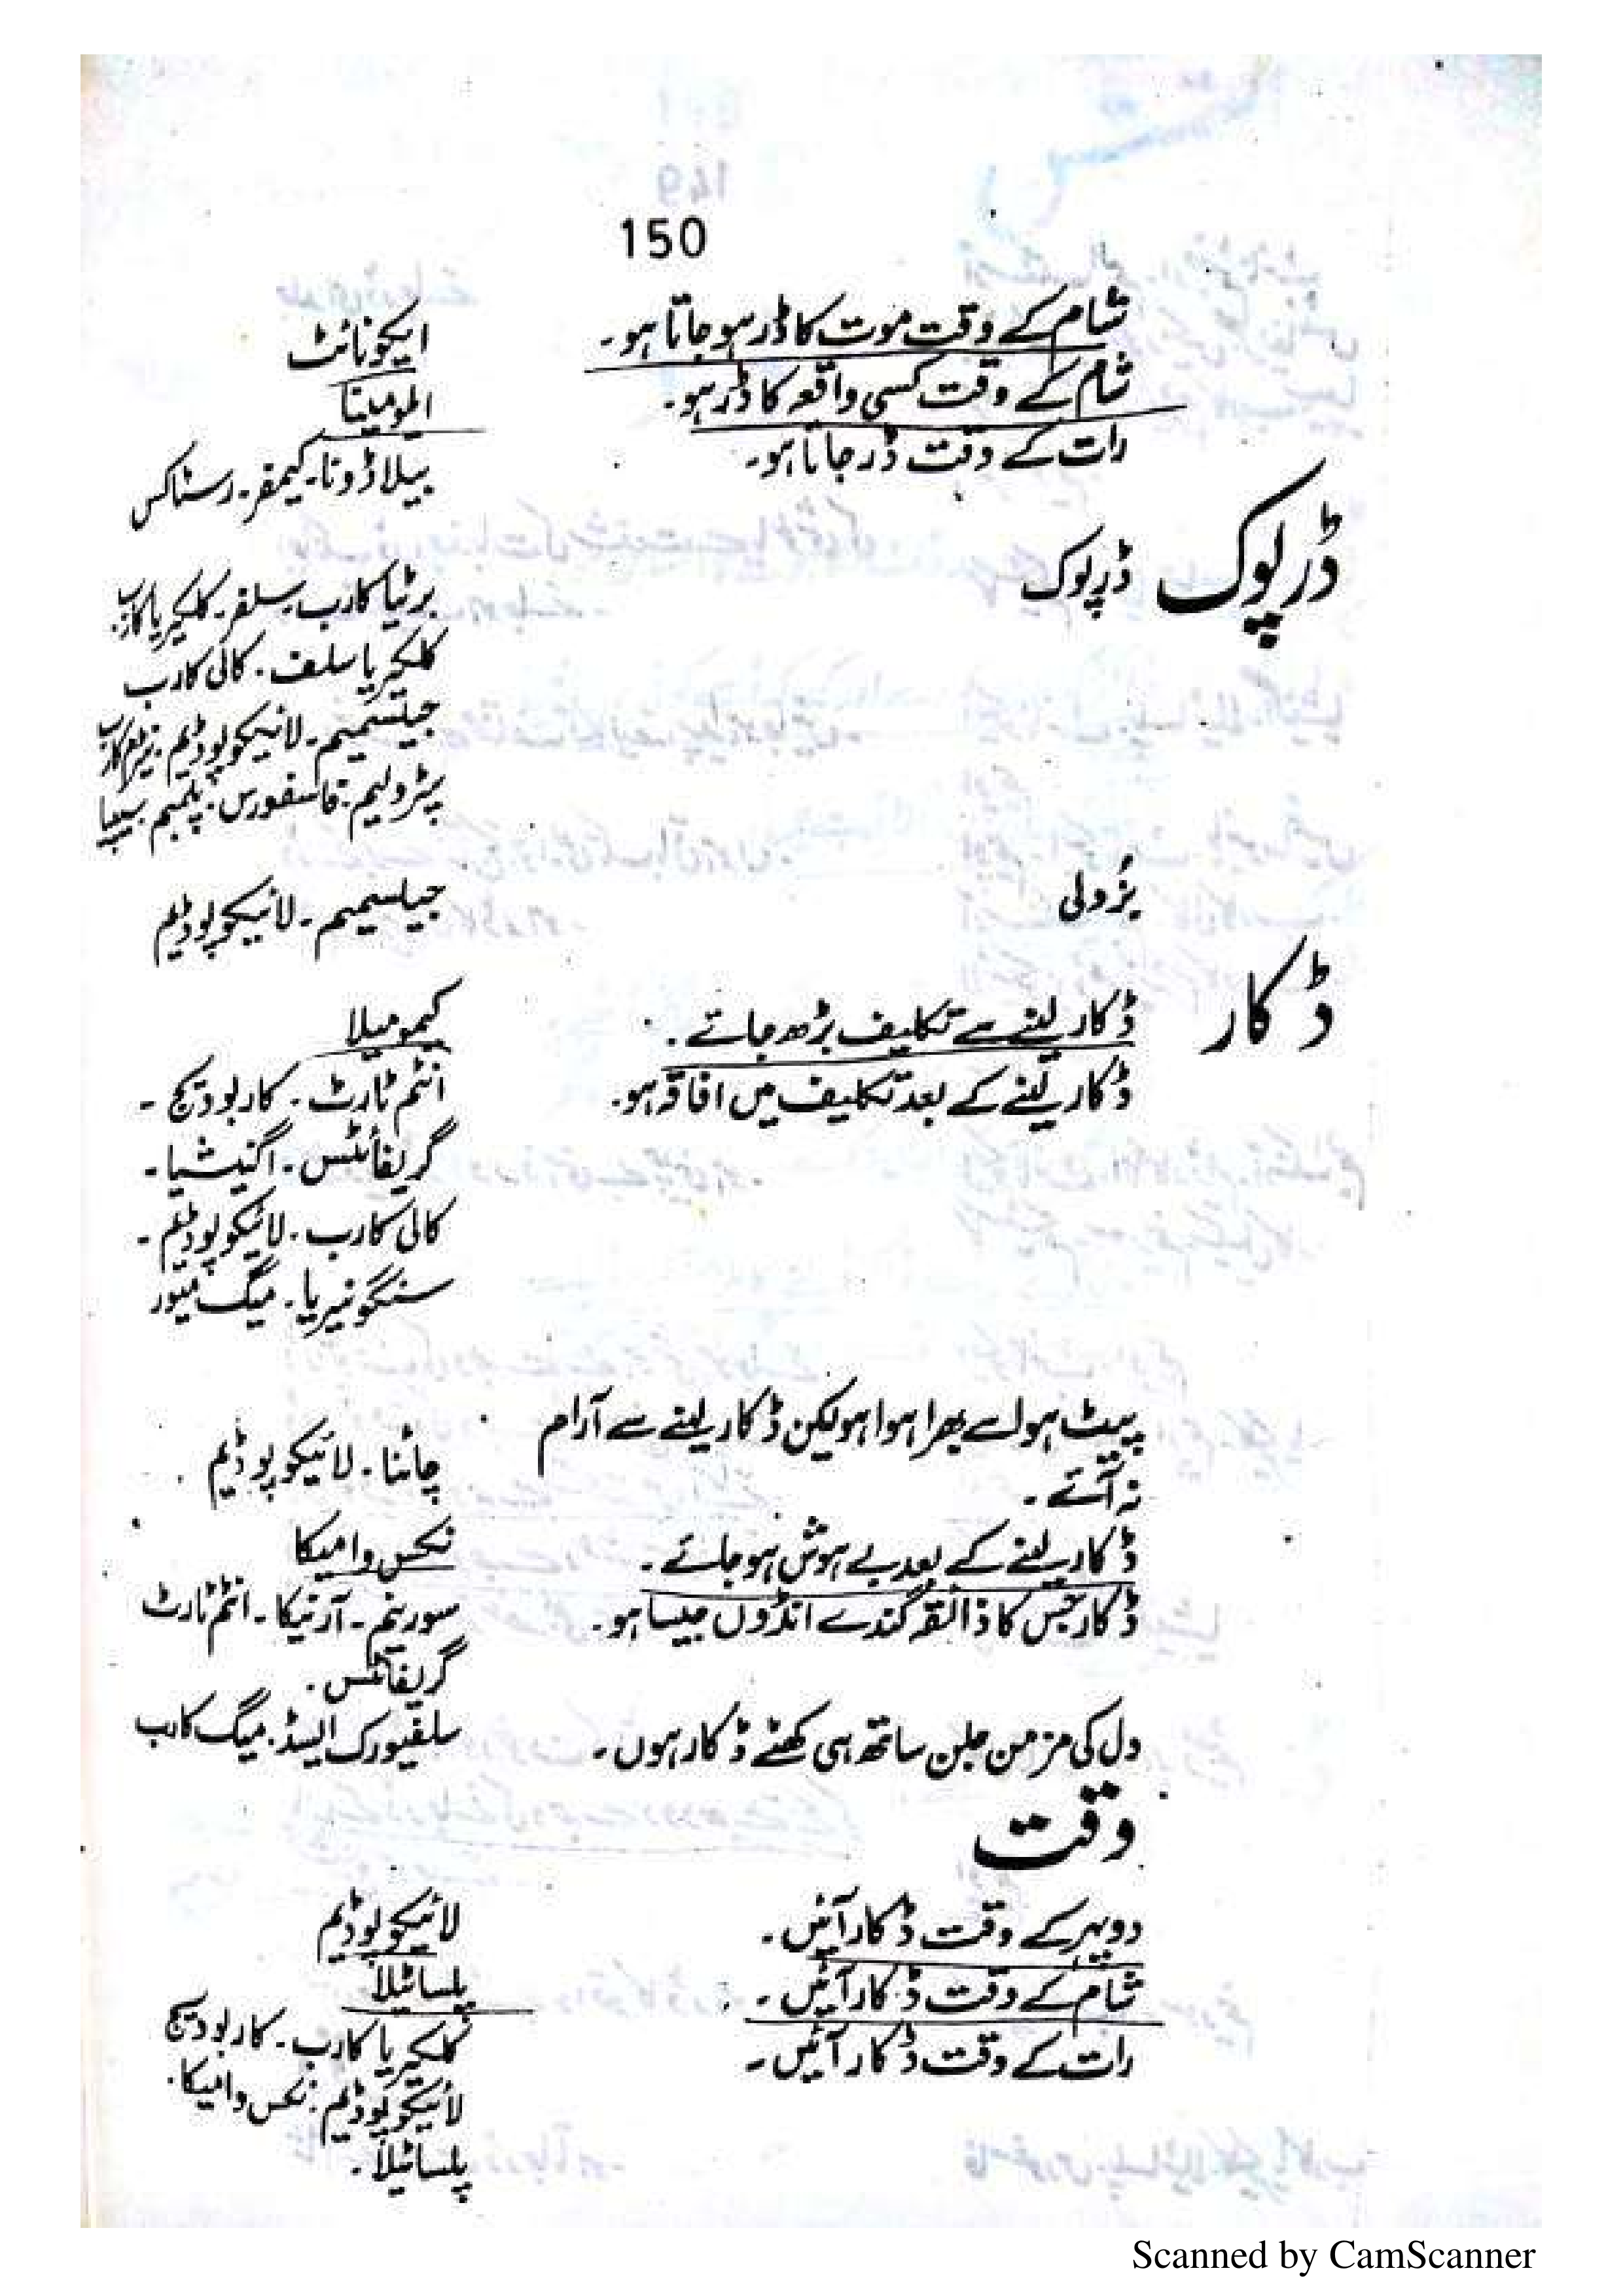 150
شام کے وقت موت کا ڈر ہو جاتا ہو۔ ایکونائٹ
شام کے وقت کسی واقعہ کا ڈر ہو۔ الومینا
رات کے وقت ڈر جاتا ہو۔ بیلاڈونا۔ کیمفر۔ رسٹاکس
ڈرپوک ڈرپوک
برئیٹا کارب۔ سلفر۔ کلکیریا کارب۔
کلکیریا سلف۔ کالی کارب
جیلسمیم۔ لائیکوپوڈیم۔
پٹرولیم۔ فاسفورس۔ پلمبم۔ سیپیا
بزدلی جیلسمیم۔ لائیکوپوڈیم
ڈکار
ڈکار لینے سے تکلیف بڑھ جائے۔ کیمومیلا
ڈکار لینے کے بعد تکلیف میں افاقہ ہو۔ انٹم ٹارٹ۔ کاربوویج۔
گریفائٹس۔ اگنیشیا۔
کالی کارب۔ لائیکوپوڈیم۔
سنگونیریا۔ میگ میور
پیٹ ہوا سے بھرا ہوا ہو لیکن ڈکار لینے سے آرام
نہ آئے۔ چائنا۔ لائیکوپوڈیم
ڈکار لینے کے بعد بے ہوش ہو جائے۔ نکس وامیکا
ڈکار جس کا ذائقہ گندے انڈوں جیسا ہو۔ سورینم۔ آرنیکا۔ انٹم ٹارٹ
گریفائٹس۔
دل کی مزمن جلن ساتھ ہی کھٹے ڈکار ہوں۔ سلفیورک ایسڈ۔ میگ کارب
وقت
دوپہر کے وقت ڈکار آئیں۔ لائیکوپوڈیم
شام کے وقت ڈکار آئیں۔ پلساٹیلا
رات کے وقت ڈکار آئیں۔ کلکیریا کارب۔ کاربوویج
لائیکوپوڈیم۔ نکس وامیکا۔
پلساٹیلا۔
Scanned by CamScanner